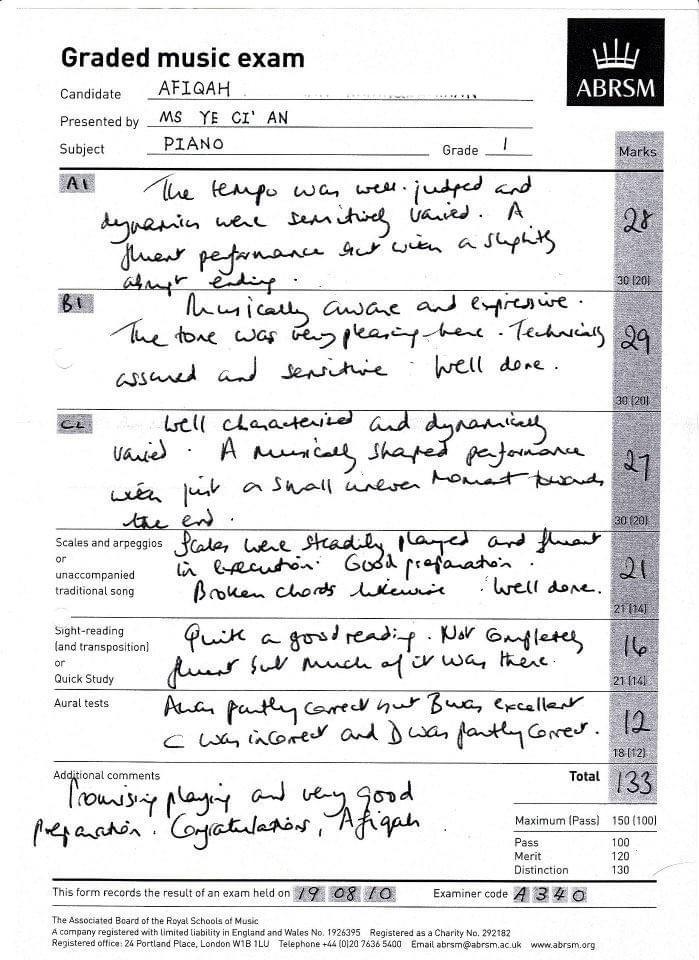 Graded music exam
ABRSM
Candidate AFIQAH
Presented by MS YE CI' AN
Subject PIANO Grade 1
Marks
A1 The tempo was well-judged and
dynamics were sensitively varied. A
fluent performance but with a slightly
abrupt ending.
28
30 (20)
B1 Musically aware and expressive.
The tone was very pleasing here. Technically
assured and sensitive. Well done.
29
30 (20)
C2 Well characterised and dynamically
varied. A musically shaped performance
with just a small uneven moment towards
the end.
27
30 (20)
Scales and arpeggios
or
unaccompanied
traditional song
Scales were steadily played and fluent
in execution. Good preparation.
Broken chords likewise. Well done.
21
21 (14)
Sight-reading
(and transposition)
or
Quick Study
Quite a good reading. Not completely
fluent but much of it was there.
16
21 (14)
Aural tests
A was partly correct but B was excellent
C was incorrect and D was partly correct.
12
18 (12)
Additional comments
Promising playing and very good
preparation. Congratulations, Afiqah
Total 133
Maximum (Pass) 150 (100)
Pass 100
Merit 120
Distinction 130
This form records the result of an exam held on 19 08 10 Examiner code A 3 4 0
The Associated Board of the Royal Schools of Music
A company registered with limited liability in England and Wales No. 1926395 Registered as a Charity No. 292182
Registered office: 24 Portland Place, London W1B 1LU Telephone +44 (0)20 7636 5400 Email abrsm@abrsm.ac.uk www.abrsm.org